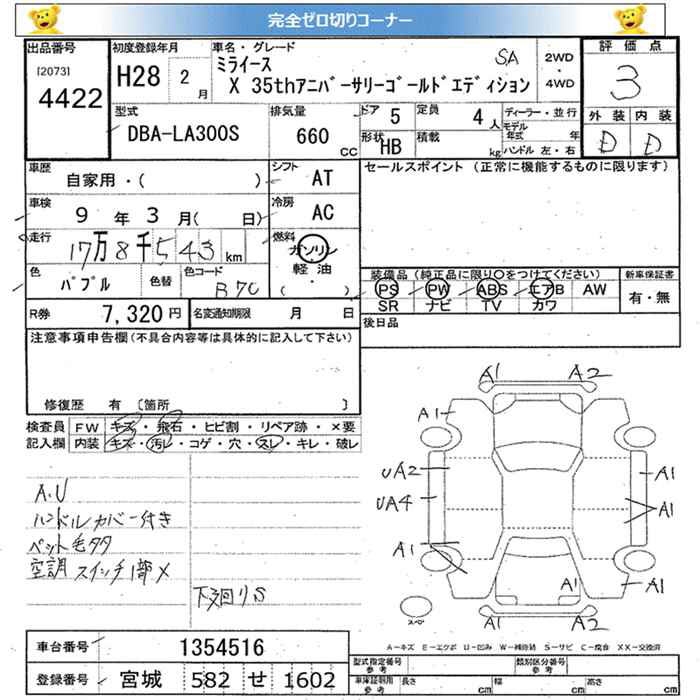 完全ゼロ切りコーナー
出品番号 初度登録年月 車名・グレード 評価点
[2073] 4422 H28 2月 ミライース SA 2WD・4WD 3
X 35thアニバーサリーゴールドエディション
型式 排気量 ドア 5 定員 4人 ディーラー・並行 外装 内装
DBA-LA300S 660cc 形状 HB 積載 kg モデル年式 年 D D
ハンドル 左・右
車歴 シフト セールスポイント (正常に機能するものに限ります)
自家用・( ) AT
車検 9年3月( 日) 冷房 AC
走行 17万8千543km 燃料 ガソリン
軽油・( )
色 パプル 色替 色コード B70
装備品 (純正品に限り○をつけてください) 新車保証書
PS PW ABS エアB AW 有・無
SR ナビ TV カワ
R券 7,320円 名変通知期限 月 日 後日品
注意事項申告欄(不具合内容等は具体的に記入して下さい)
修復歴 有 〔箇所 〕
検査員 FW キズ・飛石・ヒビ割・リペア跡・×要
記入欄 内装 キズ・汚レ・コゲ・穴・スレ・キレ・破レ
A.U
ハンドルカバー付き
ペット毛タタ
空調スイッチ1部×
下廻りS
A1 A2
A1
UA2 A1
UA4 A1
A1 A1 A1
A1 A2
スペア
A-キズ E-エクボ U-凹み W-補修跡 S-サビ C-腐食 XX-交換済
車台番号 1354516
登録番号 宮城 582 せ 1602
型式指定番号 参考 類別区分番号 参考
車庫証明用 参考 長さ cm 幅 cm 高さ cm